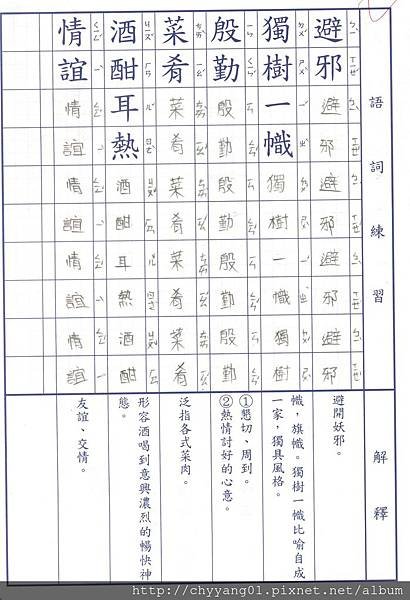 語詞練習
解釋
避邪
避邪避邪避邪避邪
避開妖邪。
獨樹一幟
獨樹一幟獨樹
幟，旗幟。獨樹一幟比喻自成
一家，獨具風格。
殷勤
殷勤殷勤殷勤殷勤
①懇切、周到。
②熱情討好的心意。
菜肴
菜肴菜肴菜肴菜肴
泛指各式菜肉。
酒酣耳熱
酒酣耳熱酒酣
形容酒喝到意興濃烈的暢快神
態。
情誼
情誼情誼情誼情誼
友誼、交情。
http://chyyang01.pixnet.net/album